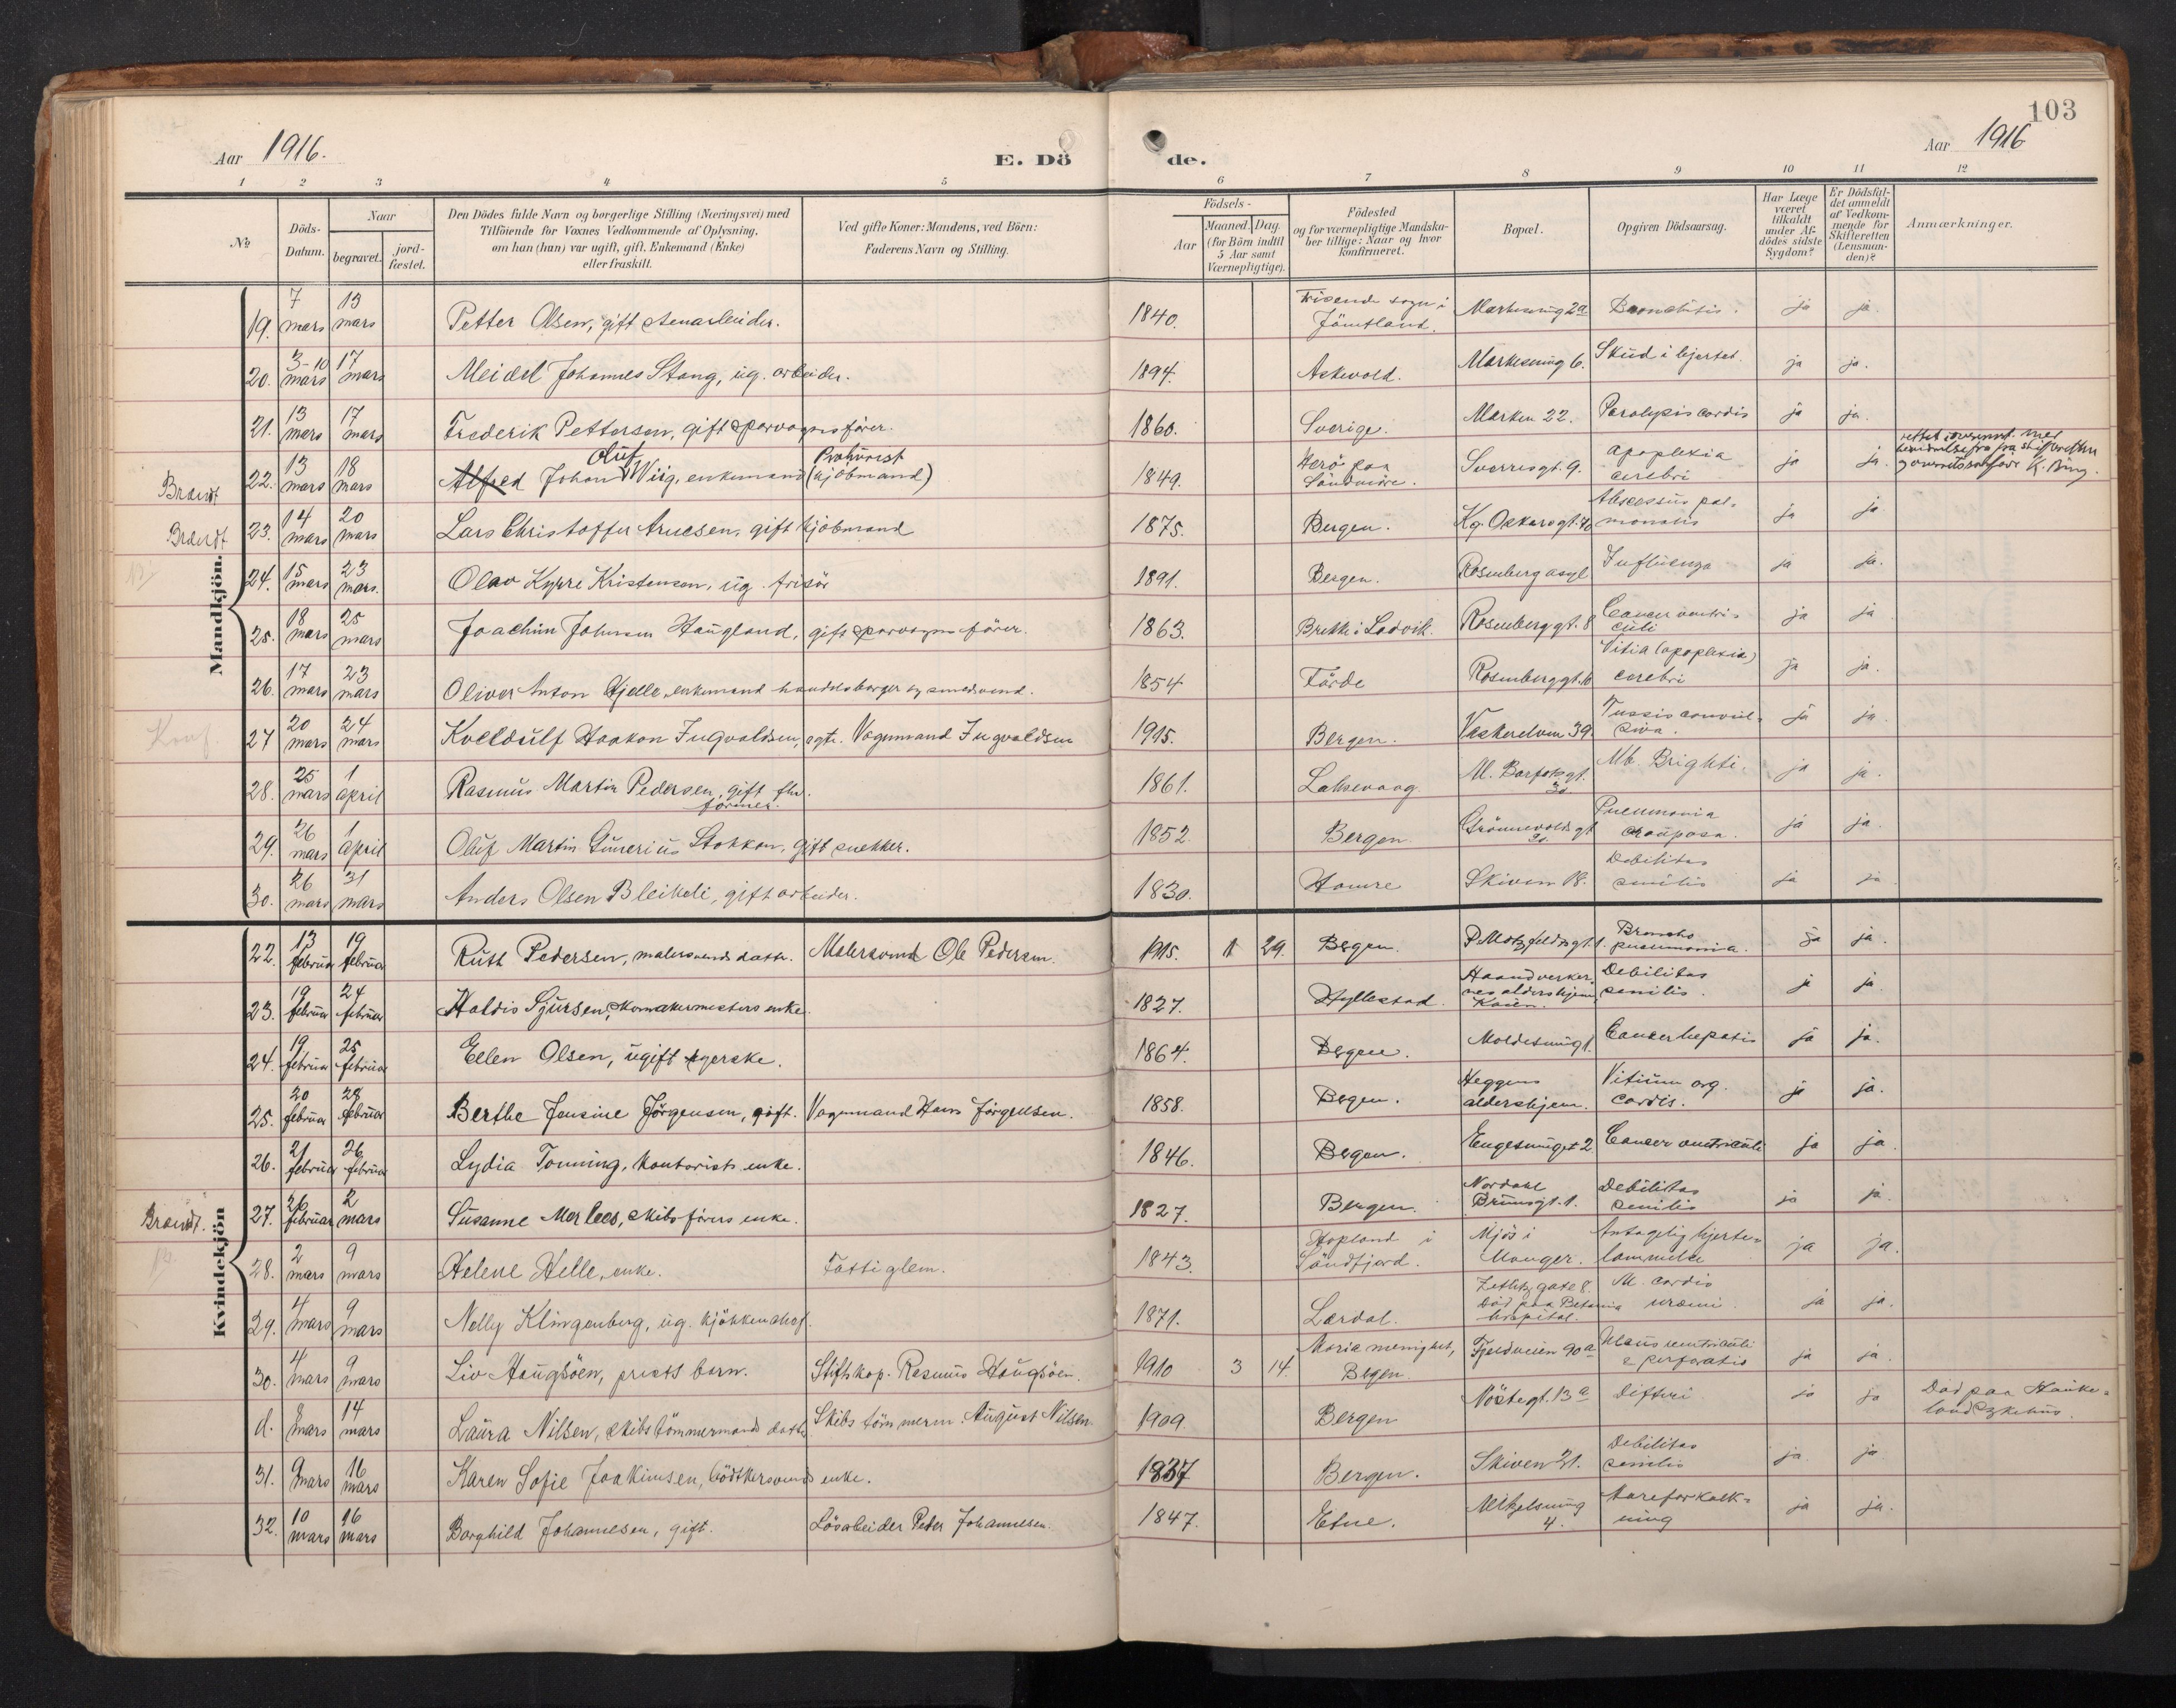 103
Aar 1916.
E. Dö
de.
Aar 1916
1 2 3 4 5 6 7 8 9 10 11 12
№
Döds-
Datum.
Naar
begravet.
jord-
fæstet.
Den Dödes fulde Navn og borgerlige Stilling (Næringsvei) med
Tilföiende for Voxnes Vedkommende af Oplysning,
om han (hun) var ugift, gift, Enkemand (Enke)
eller fraskilt.
Ved gifte Koner: Mandens, ved Börn:
Faderens Navn og Stilling.
Födsels-
Aar
Maaned.
Dag.
(for Börn indtil
5 Aar samt
Værnepligtige).
Födested
og for værnepligtige Mandska-
ber tillige: Naar og hvor
konfirmeret.
Bopæl.
Opgiven Dödsaarsag.
Har Læge
været
tilkaldt
under Af-
dödes sidste
Sygdom?
Er Dödsfal-
det anmeldt
af Vedkom-
mende for
Skifteretten
(Lensman-
den)?
Anmærkninger.
Mandkjön.
19. 7 mars 13 mars Petter Olsen, gift stenarbeider. 1840. sogn i Jämtland. Markesmug 2a Bronchitis. ja ja.
20. 3-10 mars 17 mars Meidel Johannes Stang, ug. arbeider. 1894. Askevold. Markesmug 6. Skud i hjertet. ja ja.
21. 13 mars 17 mars Frederik Pettersen, gift sporvognsfører. 1860. Sverige. Marken 22. Paralysis cordis ja ja.
Brandt 22. 13 mars 18 mars Alfred Johan Oluf Wiig, enkemand (kjøbmand) Prokurist 1849. Herö paa Söndmöre. Sverresgt. 9. Apoplexia cerebri ja ja. rettet overensst. med K. Bing.
Brandt 23. 14 mars 20 mars Lars Christoffer Arnesen, gift kjöbmand 1875. Bergen. Kg. Oskarsgt. 40 Abscessus pulmonalis ja ja
24. 15 mars 23 mars. Olav Kyrre Kristensen, ug. frisör 1891. Bergen. Rosenberg asyl Influenza ja ja.
25. 18 mars 25 mars Joachim Johnsen Haugland, gift sporvognsfører. 1863. Brekke i Ladvik. Rosenberggt. 8 Cancer ventriculi ja ja
26. 17 mars 23 mars Oliver Anton Gjelle, enkemand handelsborger og smedsvend. 1854 Förde Rosenberggt. 10 Vitia (apoplexia) cerebri ja ja.
27 20 mars 24 mars Kveldulf Haakon Ingvaldsen, egte. Vognmand Ingvaldsen 1915. Bergen. Vaskerelven 39 Tussis convulsiva. ja ja.
28. 25 mars 1 april Rasmus Martin Pedersen, gift former. 1861. Laksevaag M. Barfotsgt. Mb. Brighti. ja ja.
29. 26 mars 1 april Oluf Martin Gunerius Stokken, gift snekker. 1852. Bergen. Grönnevoldsgt Pneumonia crouposa. ja ja.
30. 26 mars 31 mars Anders Olsen Bleikeli, gift arbeider. 1830. Hamre Skiven 18. Debilitas senilis ja ja
Kvindekjön
22. 13 februar 19 februar Ruth Pedersen, malersvends datter. Malersvend Ole Pedersen. 1915. 1 29. Bergen. P. Motzfeldtsgt. 1. Broncho pneumonia. ja ja.
23. 19 februar 24 februar Haldis Sjursen, skomakermesters enke. 1827. Hyllestad. Haandverkernes aldershjem Kaien. Debilitas senilis. ja ja.
24. 19 februar 25 februar Ellen Olsen, ugift syerske. 1864. Bergen. Moldesmug 1. Cancer hepatis ja ja.
25. 20 februar 28 februar Berthe Jensine Jörgensen, gift. Vognmand Hans Jörgensen. 1858. Bergen. Heggens aldershjem. Vitium org. cordis. ja ja.
26. 21 februar 26 februar Lydia Tonning, kontorists enke. 1846. Bergen. Engesmuget 2. Cancer ventriculi ja ja
Brandt. 27. 26 februar 2 mars Susanne Mer Lees, skibsförers enke. 1827. Bergen. Nordahl Brunsgt. 1. Debilitas senilis ja ja
28. 2 mars 9 mars Helene Helle, enke. Fattiglem. 1843. Hopland i Söndfjord. Mjös i Manger. Antagelig hjertelammelse ja ja.
29. 4 mars 9 mars Nelly Klingenberg, ug. kjökkenchef. 1871. Lærdal. Zetlitzgate 8. Död paa Betania hospital. M. cordis uræmi. ja ja.
30. 4 mars 9 mars Liv Haugsöen, prests barn. Stiftskap. Rasmus Haugsöen. 1910 3 14. Maria menighet, Bergen. Fjeldveien 90a Ulcus ventriculi & perforatio ja ja.
d. 8 mars 14 mars Laura Nilsen, skibstömmermands datter Skibstömmerm. August Nilsen. 1909. Bergen Nöstegt. 13a Difteri ja ja Död paa Haukeland Sykehus.
31. 9 mars 16 mars Karen Sofie Joakimsen, bödtkersvends enke. 1837 Bergen. Skiven 31. Debilitas senilis ja. ja
32. 10 mars 16 mars Borghild Johannesen, gift. Lösarbeider Peder Johannesen. 1847. Etne. Mikelsmug 4. Aareforkalkning ja ja.